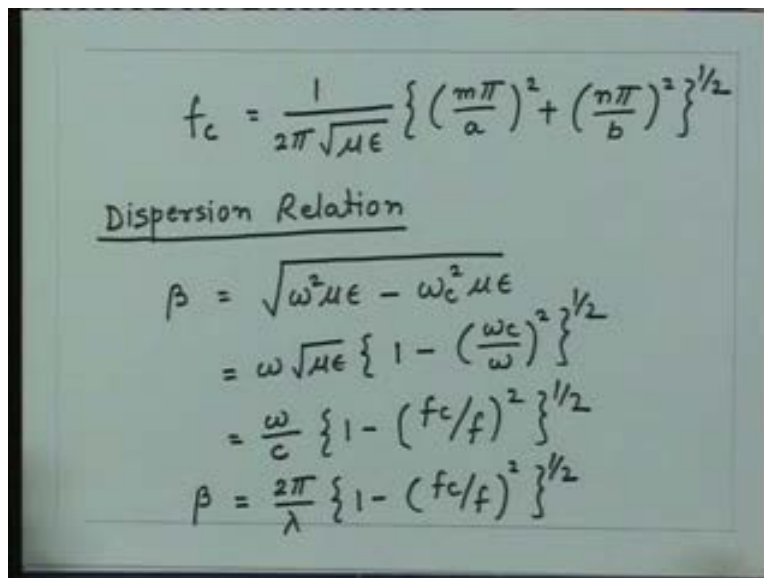 f_c = 1/(2π√(με)) {(mπ/a)² + (nπ/b)²}^1/2
Dispersion Relation
β = √(ω²με − ω_c²με)
= ω√(με) {1 − (ω_c/ω)²}^1/2
= ω/c {1 − (fc/f)²}^1/2
β = 2π/λ {1 − (fc/f)²}^1/2